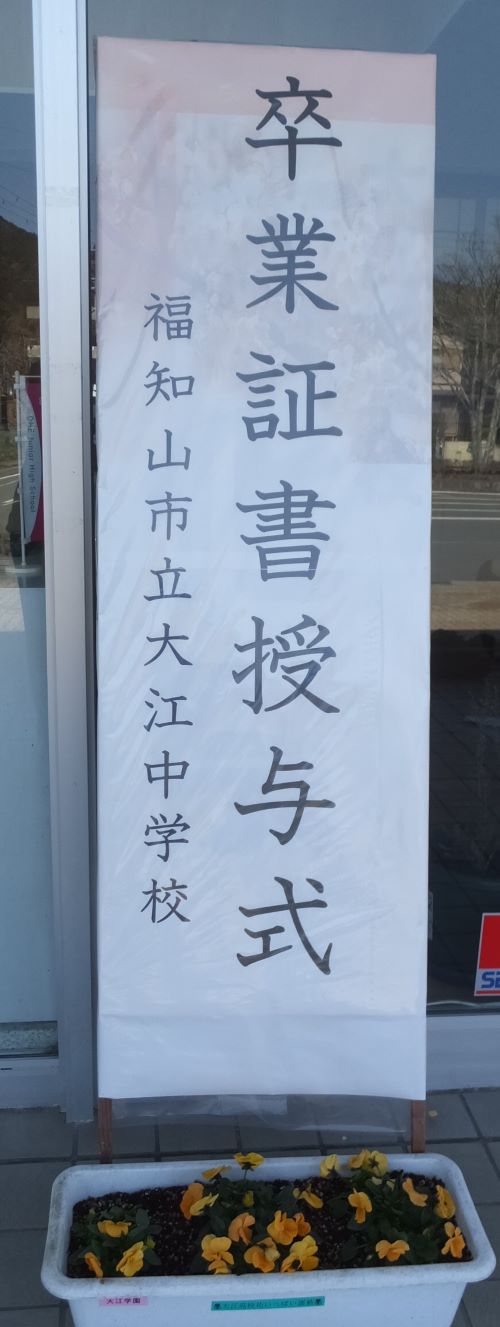 卒業証書授与式
福知山市立大江中学校
Junior High School
大江学園